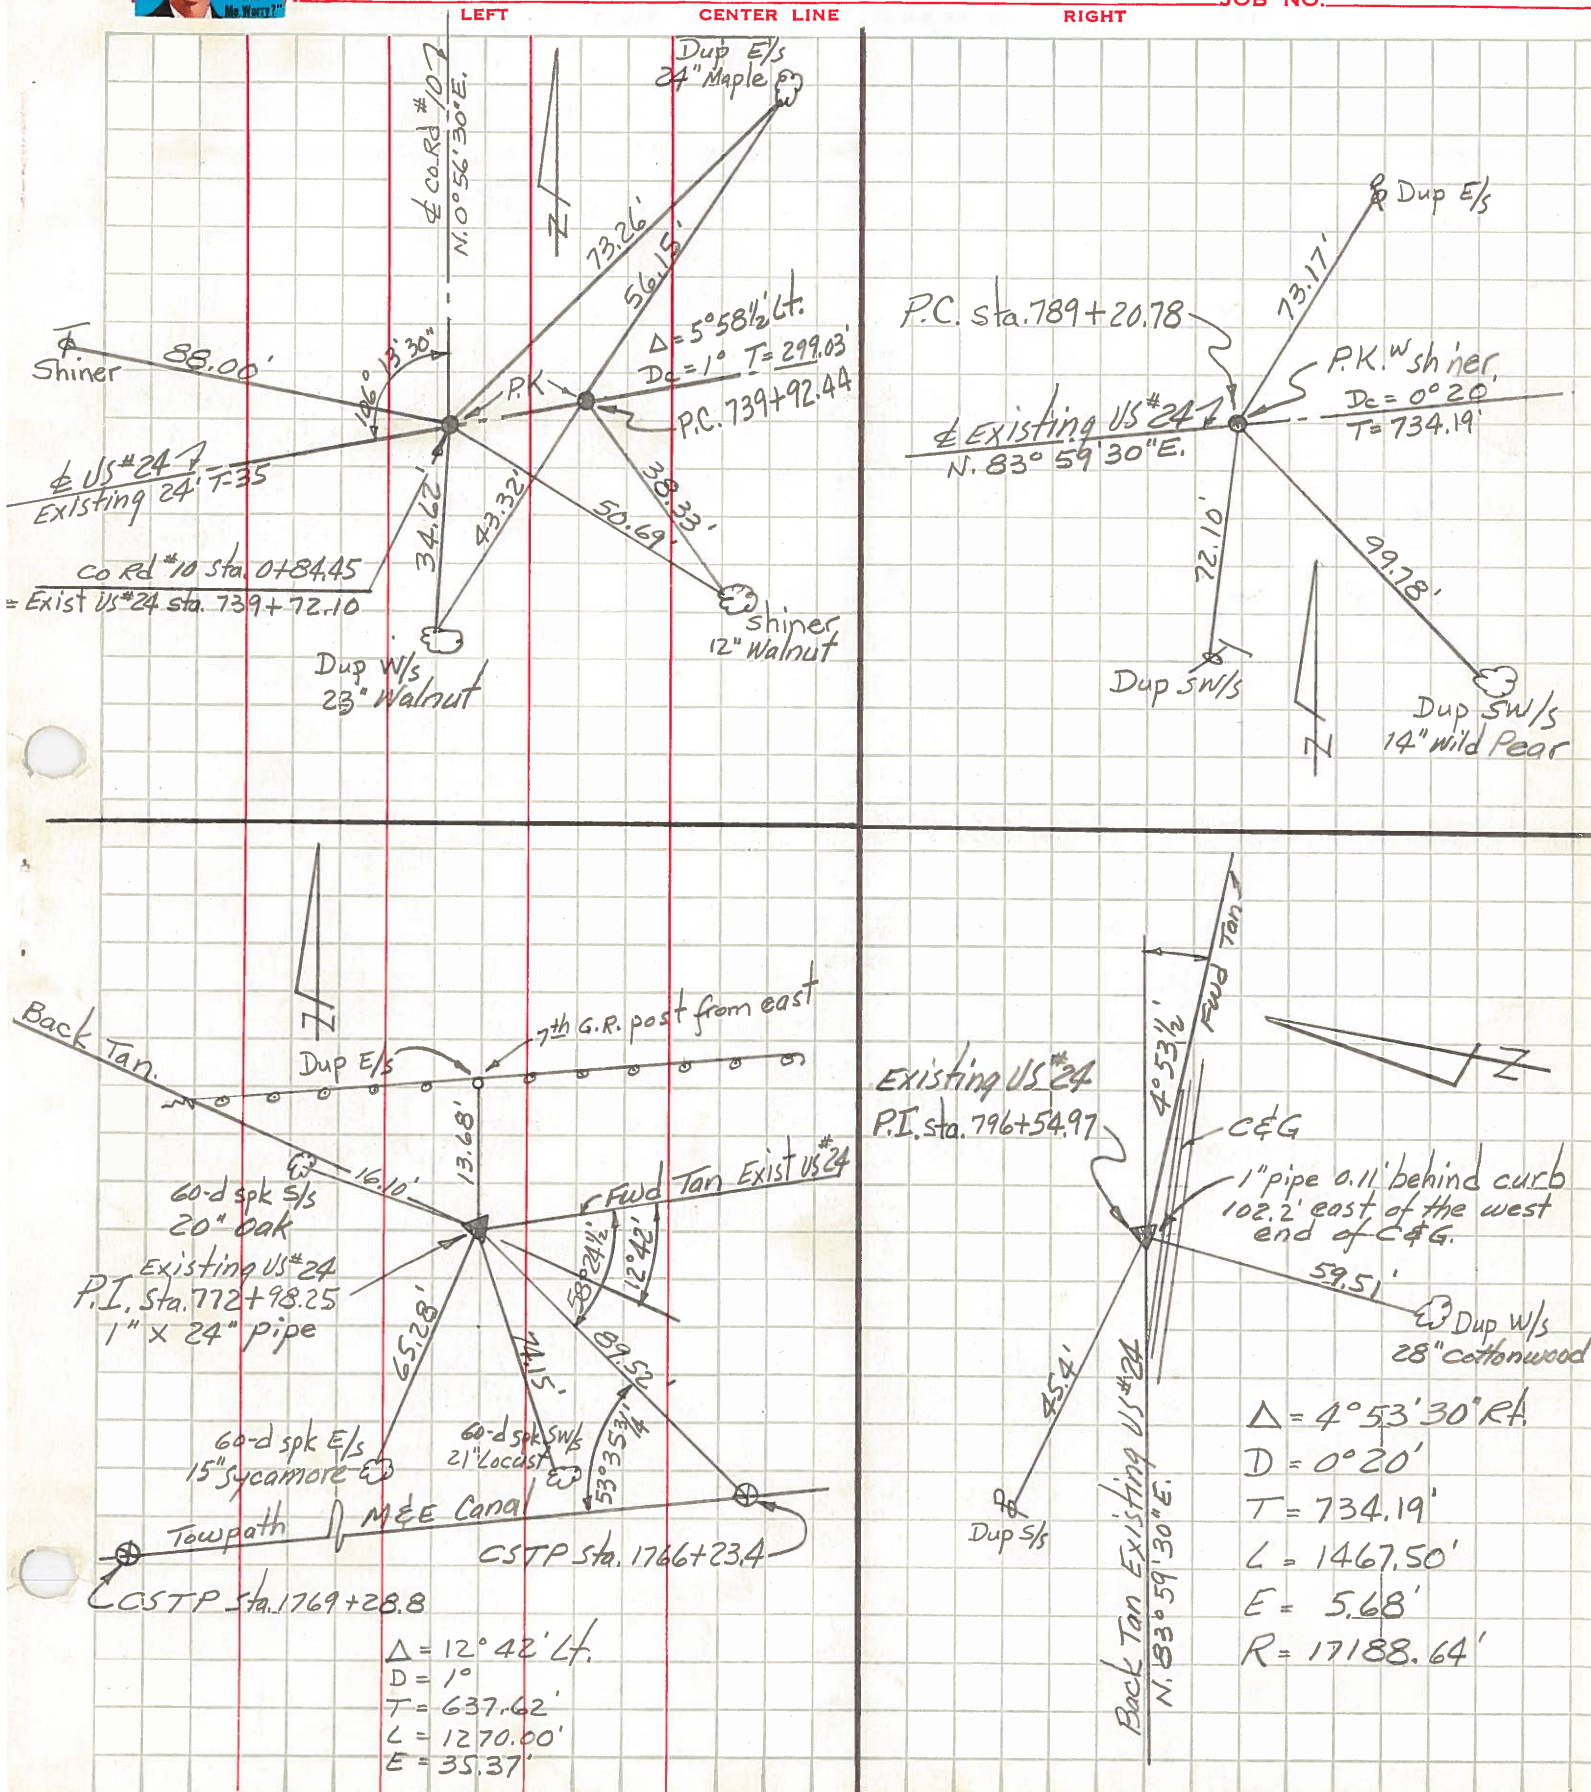 Me Worry?"
LEFT
CENTER LINE
RIGHT
JOB NO.
℄ Co. Rd #10
N. 0° 56' 30" E.
Dup E/s
24" Maple
73.26'
56.15'
Shiner
88.00'
106° 13' 30"
P.K
Δ = 5° 58½' Lt.
Dc = 1° T = 299.03'
P.C. 739+92.44
℄ US #24
Existing 24' T-35
34.62'
43.32'
50.69'
38.33'
Co Rd #10 sta. 0+84.45
= Exist US #24 sta. 739+72.10
Dup W/s
23" Walnut
shiner
12" Walnut
N
Dup E/s
73.17'
P.C. sta. 789+20.78
P.K. W shiner
Dc = 0° 20'
T = 734.19'
℄ Existing US #24
N. 83° 59' 30" E.
72.10'
99.78'
Dup SW/s
Dup SW/s
14" Wild Pear
N
Back Tan.
N
Dup E/s
7th G.R. post from east
13.68'
16.10'
60-d spk S/s
20" Oak
Fwd Tan Exist US #24
58° 24½'
12° 42'
Existing US #24
P.I. Sta. 772+98.25
1" X 24" pipe
65.28'
74.15'
89.52'
53° 35 3/4'
60-d spk E/s
15" Sycamore
60-d spk SW/s
21" Locust
Towpath
M&E Canal
CSTP Sta. 1766+23.4
CSTP Sta. 1769+28.8
Δ = 12° 42' Lt.
D = 1°
T = 637.62'
L = 1270.00'
E = 35.37'
Fwd Tan
4° 53½'
N
Existing US #24
P.I. sta. 796+54.97
C&G
1" pipe 0.11' behind curb
102.2' east of the west
end of C&G.
59.51'
Dup W/s
28" Cottonwood
45.4'
Dup S/s
Back Tan Existing US #24
N. 83° 59' 30" E.
Δ = 4° 53' 30" Rt.
D = 0° 20'
T = 734.19'
L = 1467.50'
E = 5.68'
R = 17188.64'